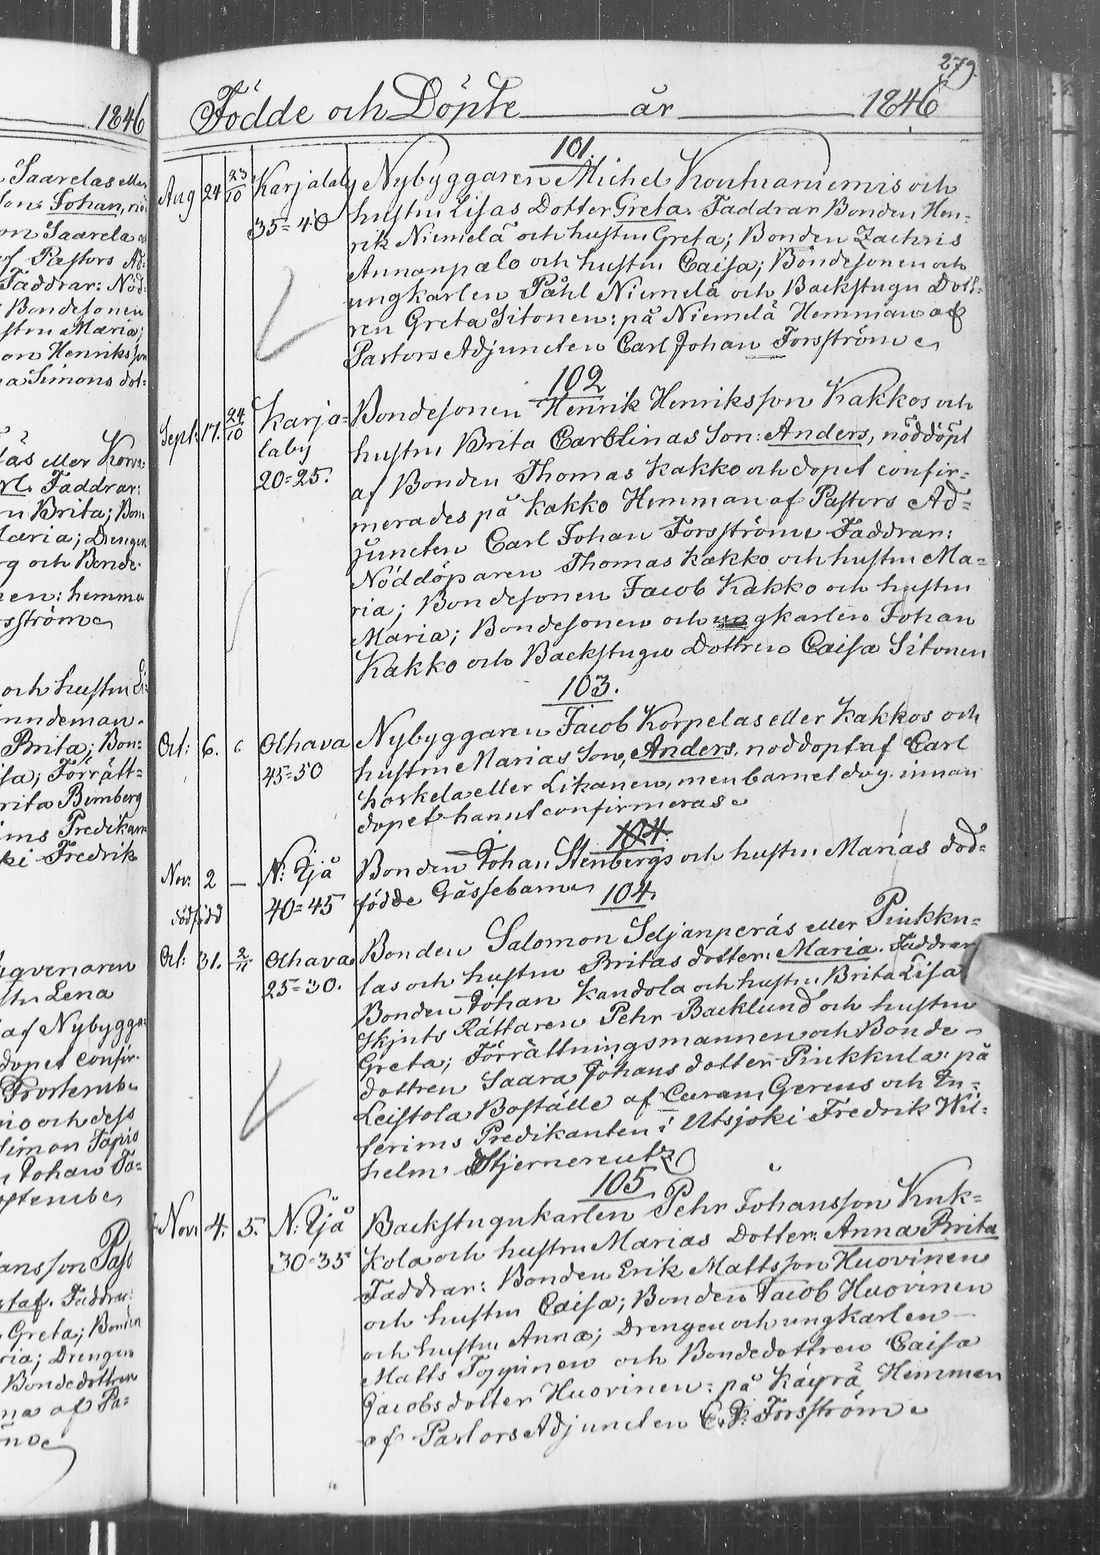 1846
Saarelas eller
Johan,
Saarela
af Pastors Ad-
Faddrar: Nöd-
Bondesonen
hustru Maria;
Henriksson
Simons dot-
eller
Faddrar:
Brita; Bon
Maria; Drengen
och Bonde-
hemma
Forsström
och hustru
Brita; Bon-
Förrätt-
Brita Bimberg
Predikan
Fredrik
Lena
af Nybygga-
dopet confir-
och dess
Simon
Johan
Faddrar:
Greta; Bonden
Drengen
Bondedottren
af Pa-
279.
Födde och Döpte år 1846
101.
Aug 24 23/10 Karjalaby Nybyggaren Michel och
35=40 hustru Lisas Dotter Greta. Faddrar Bonden Hen-
rik Niemelä och hustru Greta; Bonden Zachris
Annanpalo och hustru Caisa; Bondesonen och
ungkarlen Påhl Niemelä och Backstugu Dott-
ren Greta Sitonen: på Niemelä Hemman af
Pastors Adjuncten Carl Johan Forsström
102
Sept: 17. 24/10 Karja- Bondesonen Henrik Henriksson Kakkos och
laby hustru Brita Carolinas Son: Anders, nöddöpt
20=25. af Bonden Thomas Kakko och dopet confir-
merades på Kakko Hemman af Pastors Ad-
juncten Carl Johan Forsström Faddrar:
Nöddöparen Thomas Kakko och hustru Ma-
ria; Bondesonen Jacob Kakko och hustru
Maria; Bondesonen och ungkarlen Johan
Kakko och Backstugu Dottren Caisa Sitonen
103.
Oct: 6. Olhava Nybyggaren Jacob Korpelas eller Kakkos och
45=50 hustru Marias Son, Anders, nöddopt af Carl
Koskela eller Likanen, men barnet dog innan
dopet hannt confirmeras
104.
Nov: 2 — N: Ijå Bonden Johan Stenbergs och hustru Marias död-
dödfödd 40=45 födde Gåssebarn
104.
Oct: 31. 2/11 Olhava Bonden Salomon Seljänperäs eller Pinkku-
25=30. las och hustru Britas dotter: Maria. Faddrar
Bonden Johan Kandola och hustru Brita Lisa
Skjuts Rättaren Pehr Backlund och hustru
Greta; Förrättningsmannen och Bonde-
dottren Saara Johans dotter Pinkkula: på
Leistola Boställe af Curam Gerens och In-
terims Predikanten i Utsjoki Fredrik Wil-
helm Stjernereutz
105
Nov: 4. 5. N: Ijå Backstugukarlen Pehr Johansson Kuk-
30=35 kola och hustru Marias Dotter: Anna Brita
Faddrar: Bonden Erik Mattsson Huovinen
och hustru Caisa; Bonden Jacob Huovinen
och hustru Anna; Drengen och ungkarlen
Matts Toppinen och Bondedottren Caisa
Jacobsdotter Huovinen: på Käyrä Hemman
af Pastors Adjuncten C. J. Forsström